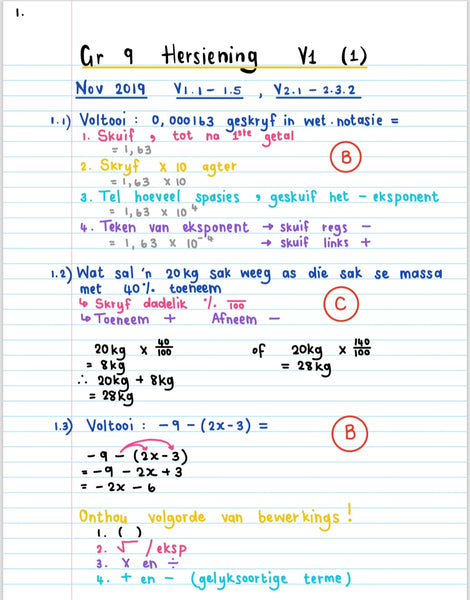 1.
Gr 9 Hersiening V1 (1)
Nov 2019 V1.1 - 1.5 , V2.1 - 2.3.2
1.1) Voltooi : 0,000163 geskryf in wet. notasie =
1. Skuif , tot na 1ste getal
= 1,63
B
2. Skryf x 10 agter
= 1,63 x 10
3. Tel hoeveel spasies , geskuif het - eksponent
= 1,63 x 10⁴
4. Teken van eksponent → skuif regs -
= 1,63 x 10⁻⁴ → skuif links +
1.2) Wat sal 'n 20kg sak weeg as die sak se massa
met 40% toeneem
↳ Skryf dadelik % /100
C
↳ Toeneem + Afneem -
20kg x 40/100 of 20kg x 140/100
= 8kg = 28kg
∴ 20kg + 8kg
= 28kg
1.3) Voltooi : -9 - (2x-3) =
B
-9 - (2x-3)
= -9 - 2x + 3
= -2x - 6
Onthou volgorde van bewerkings !
1. ( )
2. √ / eksp
3. x en ÷
4. + en - (gelyksoortige terme)